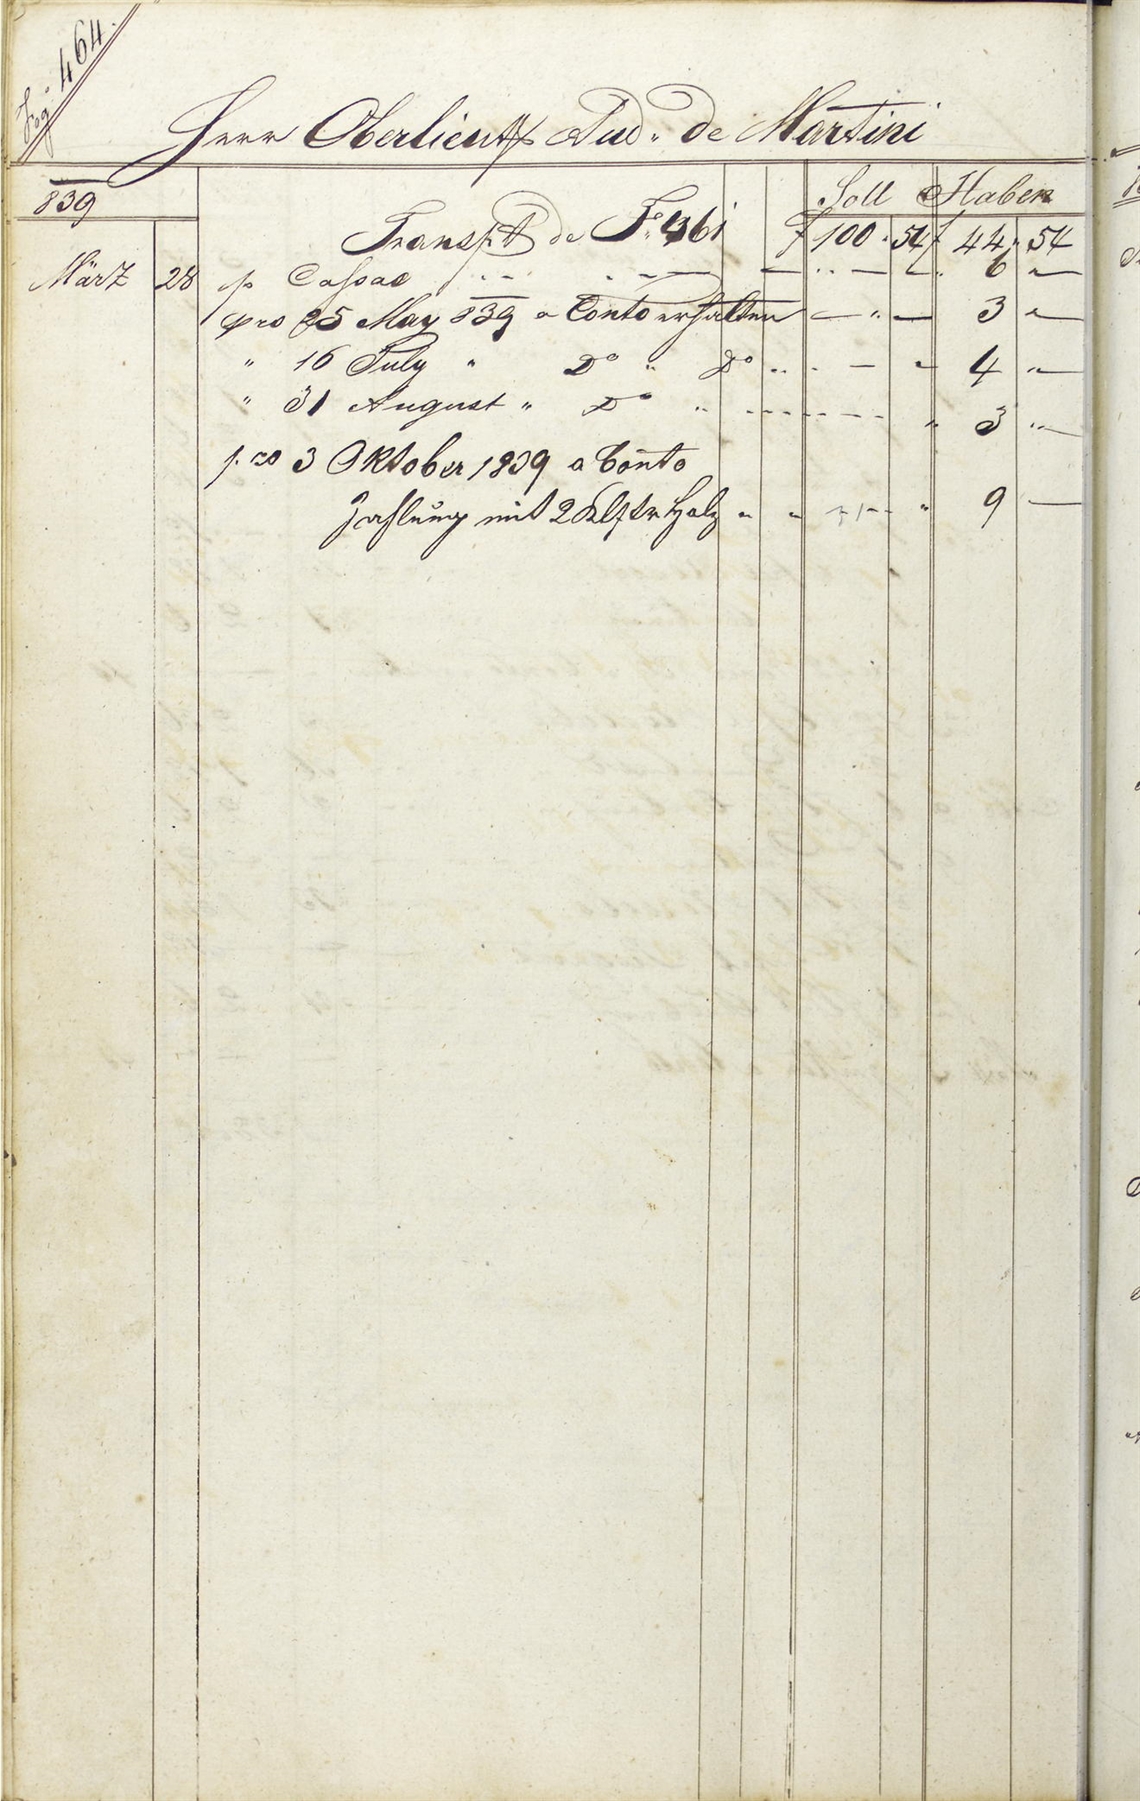 Fog. 464.
Herr Oberlieut Lud. de Martini
839 Soll Haben
Transpt de Fo 461 f 100 . 54 f 44 . 54
März 28 p Cassae — " 6 "
pro 25 May 839 a Conto erhalten — " — 3 "
" 16 July " Do " Do " — " 4 "
" 31 August " Do " — " 3 "
pro 3 Oktober 1839 a Conto
Zahlung mit 2 Klftr Holz " " — " 9 —